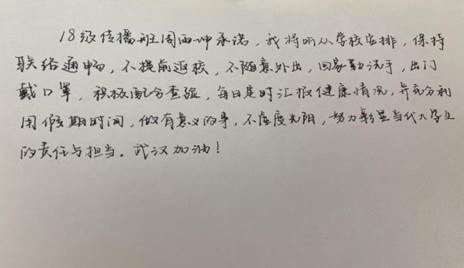 18级传播班周西坤承诺，我将听从学校安排，保持
联络通畅，不提前返校，不随意外出，回家勤洗手，出门
戴口罩，积极配合查验，每日定时汇报健康情况，并充分利
用假期时间，做有意义的事，不虚度光阴，努力彰显当代大学生
的责任与担当。武汉加油！